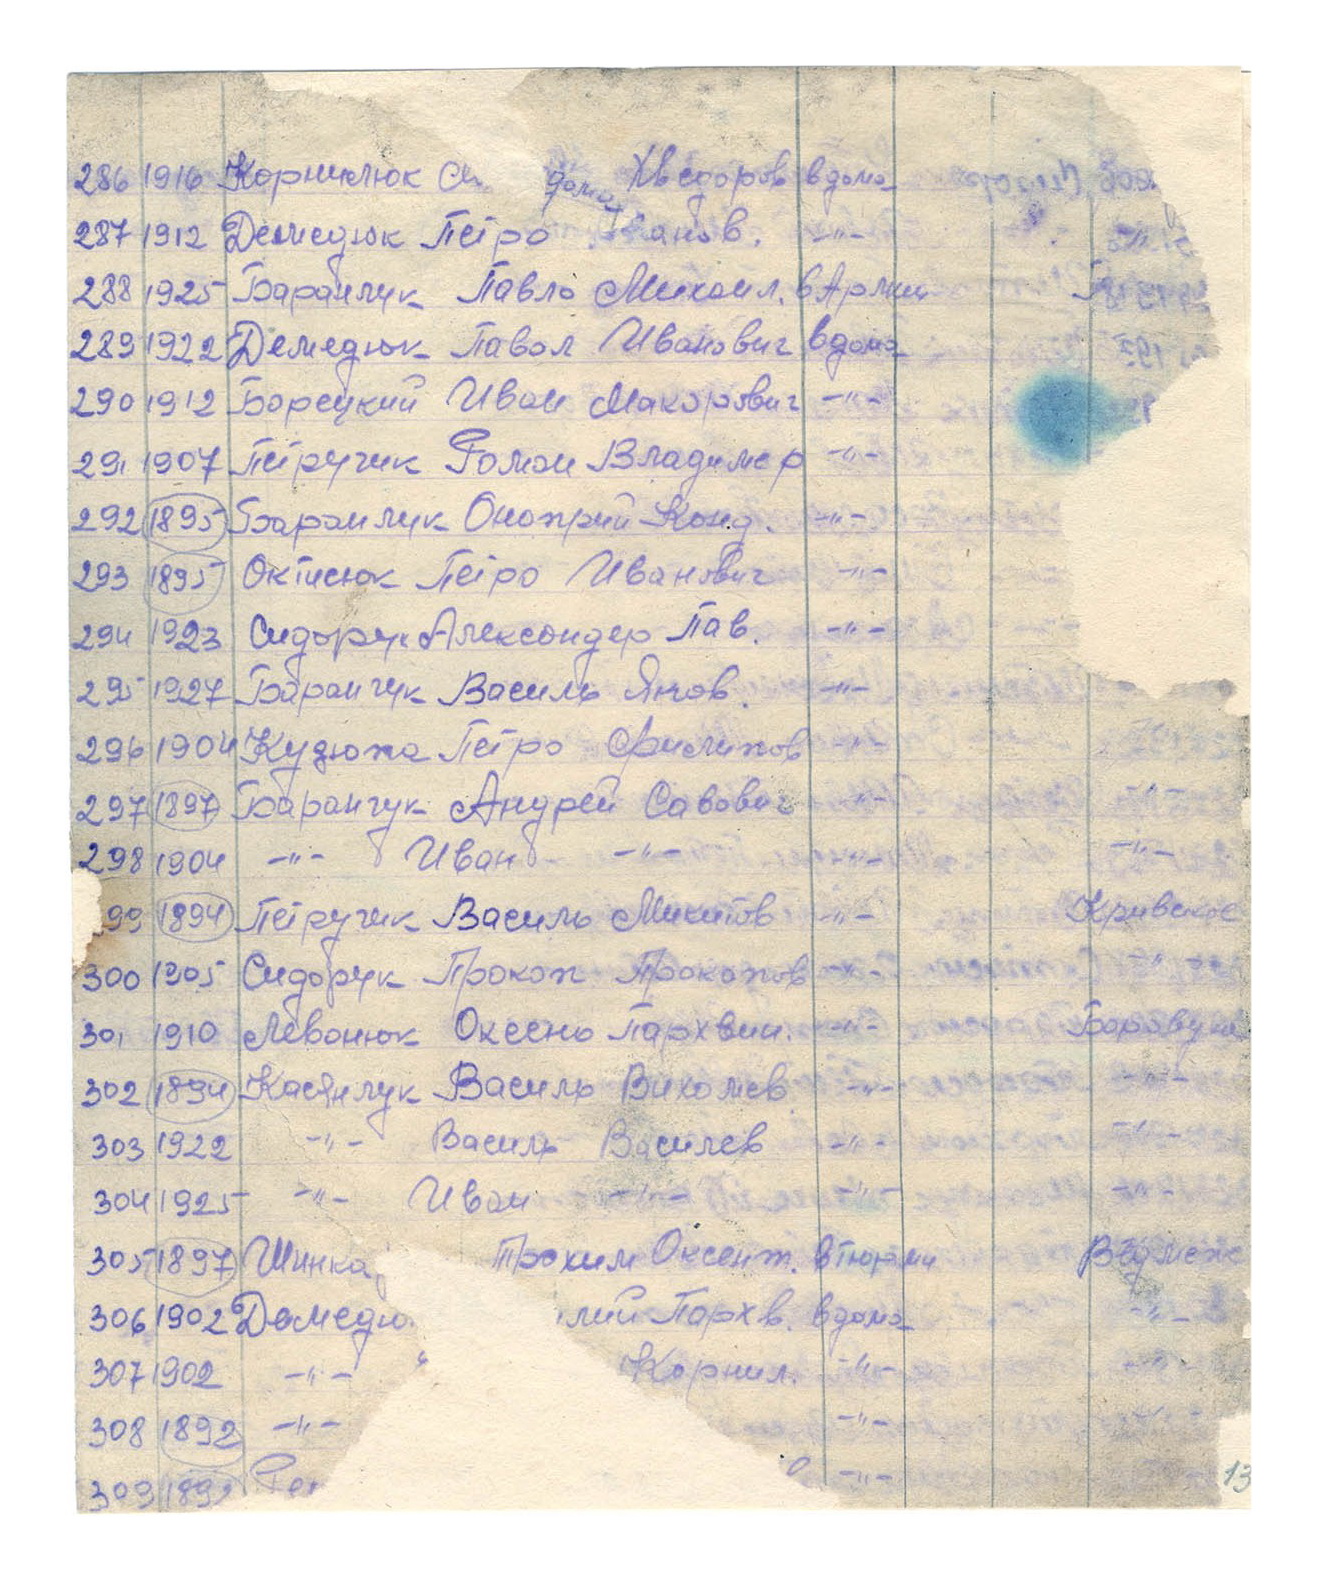 286 1916 Корнилюк Хведоров вдома
287 1912 Демедюк Петро ванов. -"-
288 1925 Баранчук Павло Михаил. в Армии
289 1922 Демедюк Павол Иванович вдома
290 1912 Борецкий Иван Макарович -"-
291 1907 Петручик Роман Владимер -"-
292 1895 Баранчук Оноприй Конд. -"-
293 1895 Октисюк Петро Иванович -"-
294 1923 Сидорук Александер Пав. -"-
295 1927 Баранчук Василь Яков. -"-
296 1904 Кудюжа Петро Филипов -"-
297 1897 Баранчук Андрей Савович -"- -"-
298 1904 -"- Иван -"- -"- -"-
99 1894 Петручик Василь Микитов -"- Кривское
300 1905 Сидорук Прокоп Прокопов -"- -"-
301 1910 Левонюк Оксень Пархвин. -"-
302 1894 Касянчук Василь -"- -"-
303 1922 -"- Василь Василев -"- -"-
304 1925 -"- Иван -"- -"- -"-
305 1897 Шинка Трохим Оксент. в тюрми
306 1902 Демедю лий Пархв. вдома -"-
307 1902 -"- Корнил. -"- -"-
308 1892 -"- -"-
309 189 -"-
13